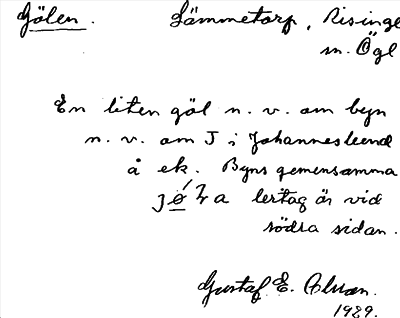 Gölen. Lämmetorp, Risinge
sn. Ögl
En liten göl n. v. om byn
n. v. om J i Johanneslund
å ek. Byns gemensamma
lertag är vid
södra sidan.
Gustaf E.
1929.